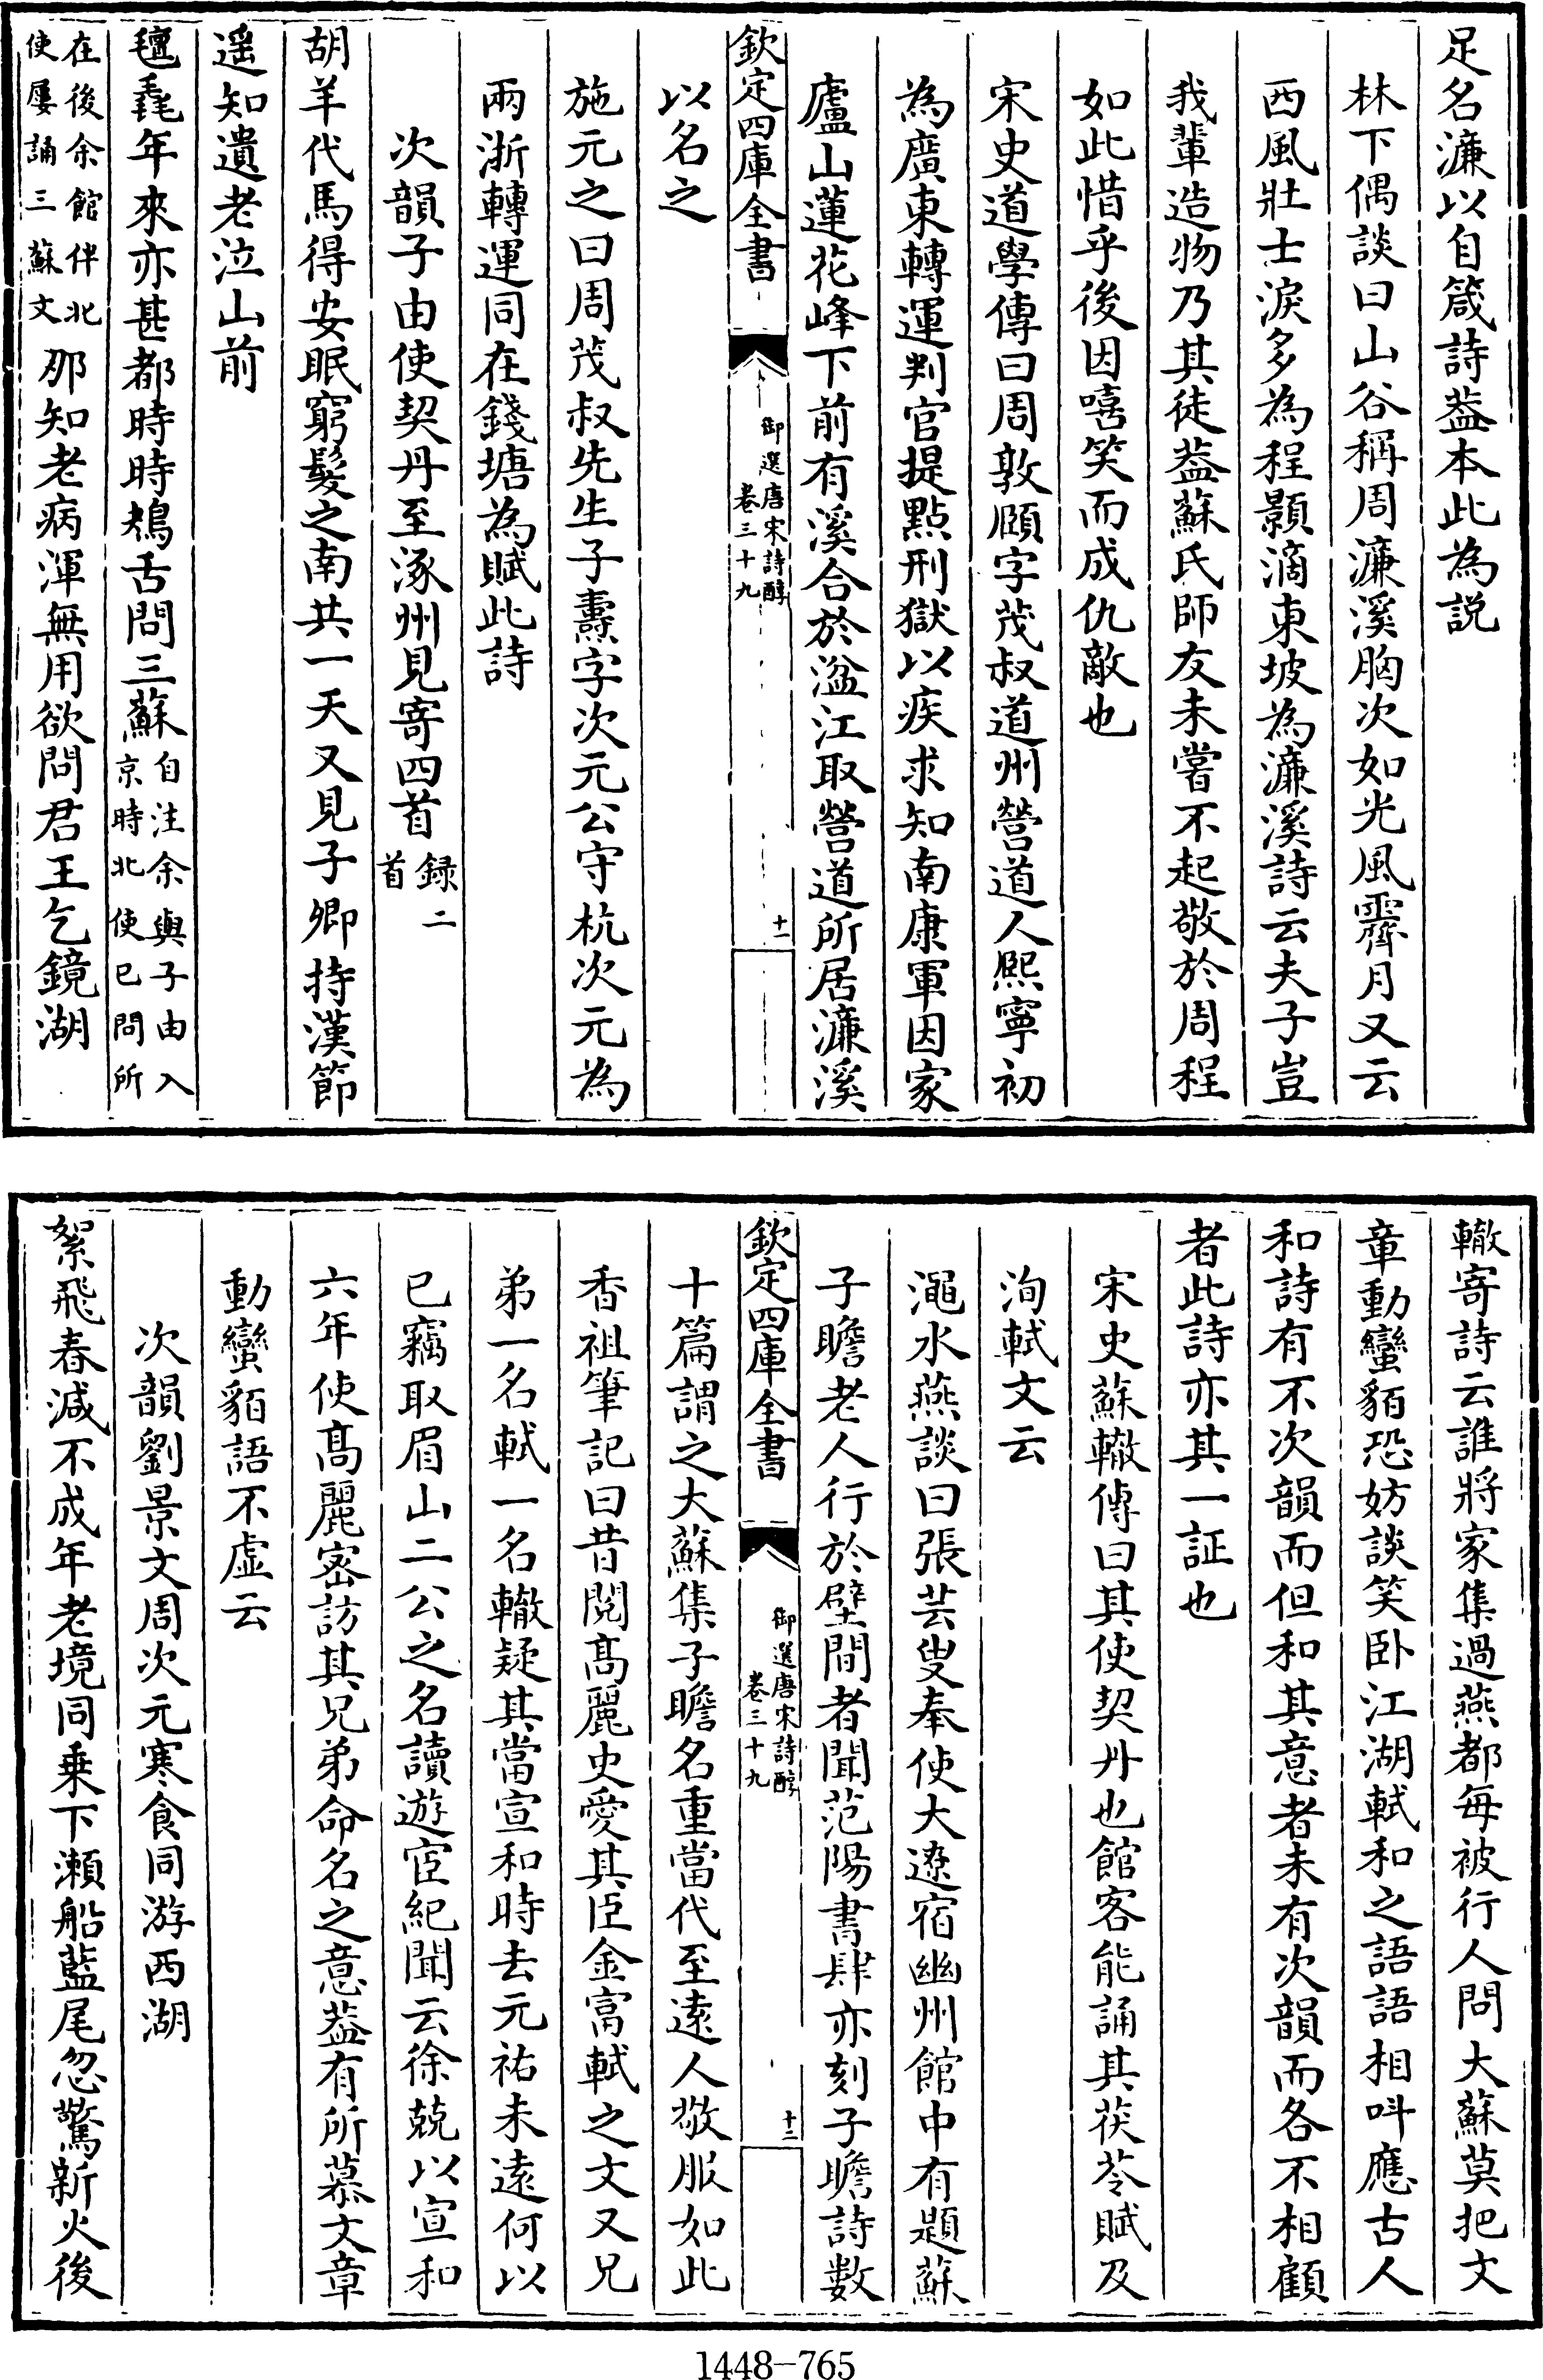 足名濂以自箴詩葢本此為説
林下偶談曰山谷稱周濂溪胸次如光風霽月又云
西風壯士淚多為程顥滴東坡為濂溪詩云夫子豈
我輩造物乃其徒葢蘇氏師友未嘗不起敬於周程
如此惜乎後因嘻笑而成仇敵也
宋史道學傳曰周敦頤字茂叔道州營道人熙寧初
為廣東轉運判官提點刑獄以疾求知南康軍因家
廬山蓮花峰下前有溪合於湓江取營道所居濂溪
欽定四庫全書
御選唐宋詩醇
卷三十九
十一
以名之
施元之曰周茂叔先生子燾字次元公守杭次元為
兩浙轉運同在錢塘為賦此詩
次韻子由使契丹至涿州見寄四首錄二
首
胡羊代馬得安眠窮髮之南共一天又見子卿持漢節
遥知遺老泣山前
氊毳年來亦甚都時時鴂舌問三蘇自注余與子由入
京時北使已問所
在後余館伴北
使屢誦三蘇文那知老病渾無用欲問君王乞鏡湖
轍寄詩云誰將家集過燕都每被行人問大蘇莫把文
章動蠻貊恐妨談笑卧江湖軾和之語語相呌應古人
和詩有不次韻而但和其意者未有次韻而各不相顧
者此詩亦其一証也
宋史蘇轍傳曰其使契丹也館客能誦其茯苓賦及
洵軾文云
澠水燕談曰張芸叟奉使大遼宿幽州館中有題蘇
子瞻老人行於壁間者聞范陽書肆亦刻子瞻詩數
欽定四庫全書
御選唐宋詩醇
卷三十九
十二
十篇謂之大蘇集子瞻名重當代至逺人敬服如此
香祖筆記曰昔閱髙麗史愛其臣金富軾之文又兄
弟一名軾一名轍疑其當宣和時去元祐未逺何以
已竊取眉山二公之名讀遊宦紀聞云徐兢以宣和
六年使髙麗宻訪其兄弟命名之意葢有所慕文章
動蠻貊語不虛云
次韻劉景文周次元寒食同游西湖
絮飛春減不成年老境同乗下瀬船藍尾忽驚新火後
1448-765